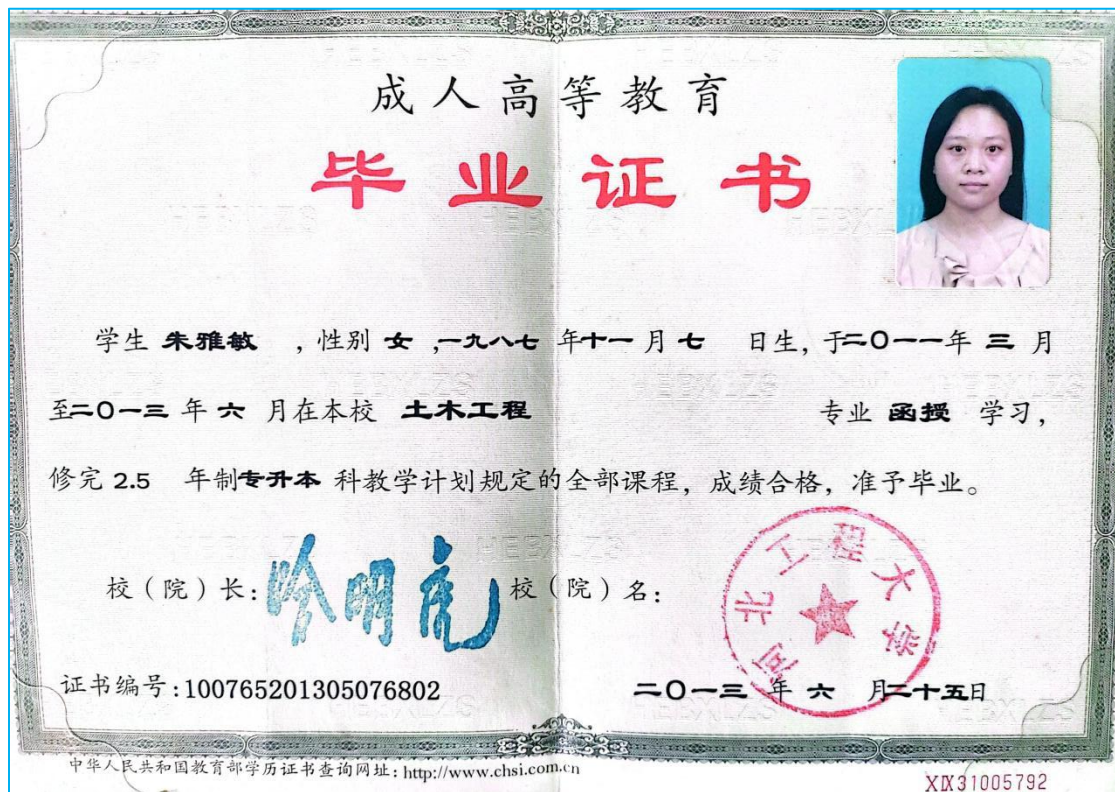 成人高等教育
毕业证书
学生 朱雅敏 ，性别 女 ,一九八七 年十一月 七 日生，于二〇一一年 三 月
至二〇一三 年 六 月在本校 土木工程 专业 函授 学习，
修完 2.5 年制专升本 科教学计划规定的全部课程，成绩合格，准予毕业。
校（院）长：哈明虎 校（院）名：
河北工程大学
证书编号：100765201305076802 二〇一三 年 六 月二十五日
中华人民共和国教育部学历证书查询网址：http://www.chsi.com.cn
XIX31005792
HEBXLZS